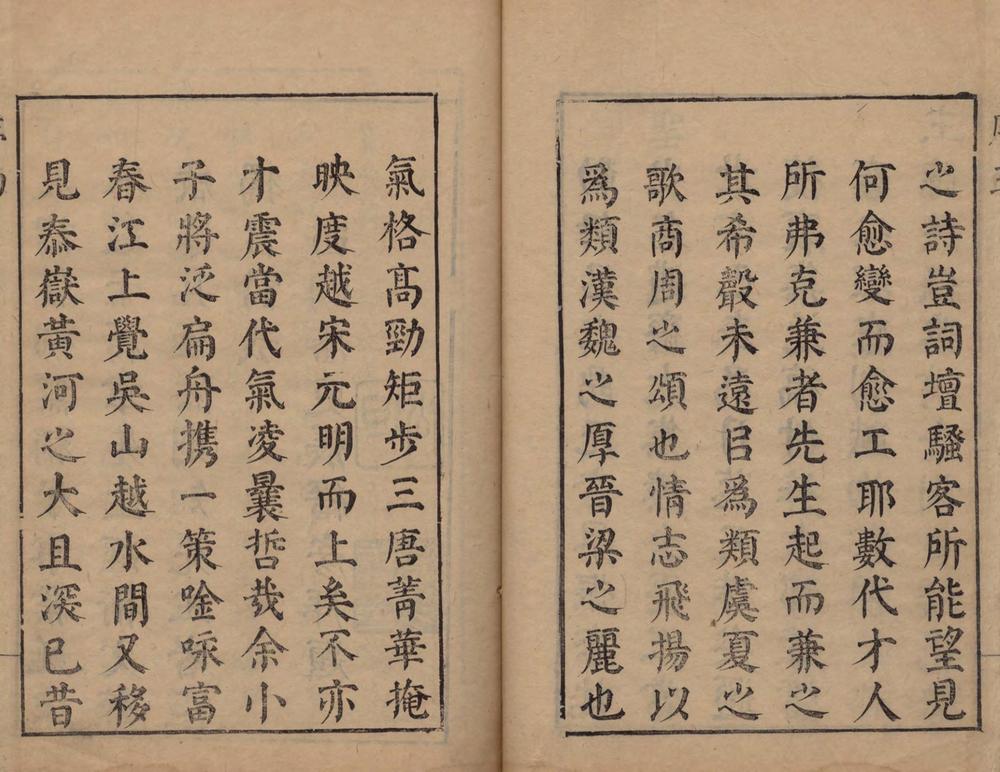 之詩豈詞壇騷客所能望見
何愈變而愈工耶數代才人
所弗克兼者先生起而兼之
其希聲未遠㠯爲類虞夏之
歌商周之頌也情志飛揚以
爲類漢魏之厚晉梁之麗也
氣格高勁矩步三唐菁華掩
映度越宋元明而上矣不亦
才震當代氣凌曩哲哉余小
子將泛扁舟携一策唫咏富
春江上覺吳山越水間又移
見泰嶽黃河之大且深已昔